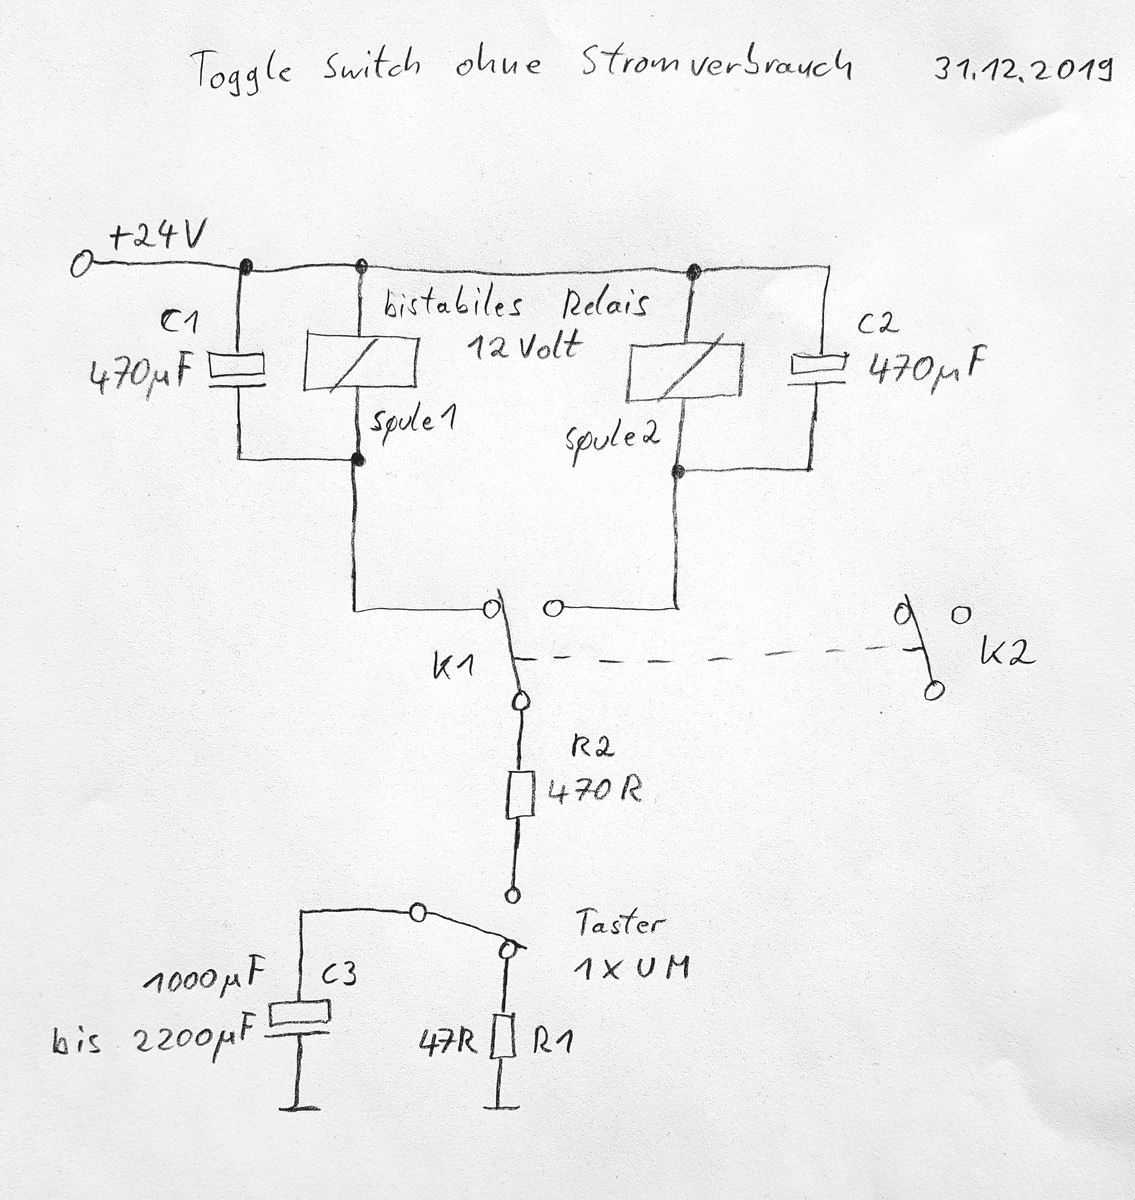 Toggle Switch ohne Stromverbrauch 31.12.2019
+24V
bistabiles Relais
12 Volt
C1
470µF
C2
470µF
Spule1
Spule2
K1
K2
R2
470R
Taster
1XUM
1000µF
bis 2200µF
C3
47R R1